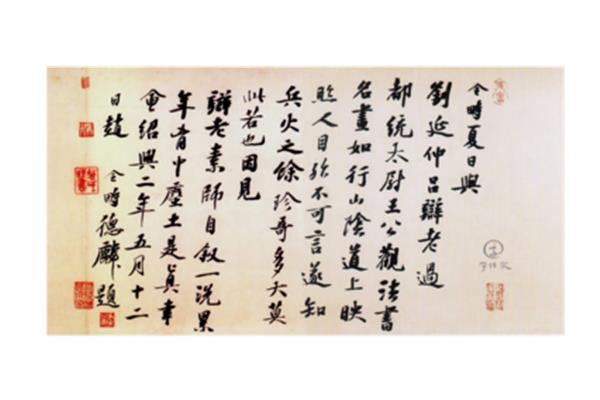 令時夏日與
劉延仲呂辯老過
都統太尉王公觀法書
名畫如行山陰道上映
照人目殆不可言遂知
兵火之餘珍奇多大莫
此若也因見
辯老素師自叙一洗累
年胷中塵土是真幸
會紹興二年五月十二
日趙 令時德麟題